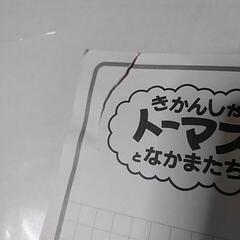 きかんしゃ
トーマス
となかまたち